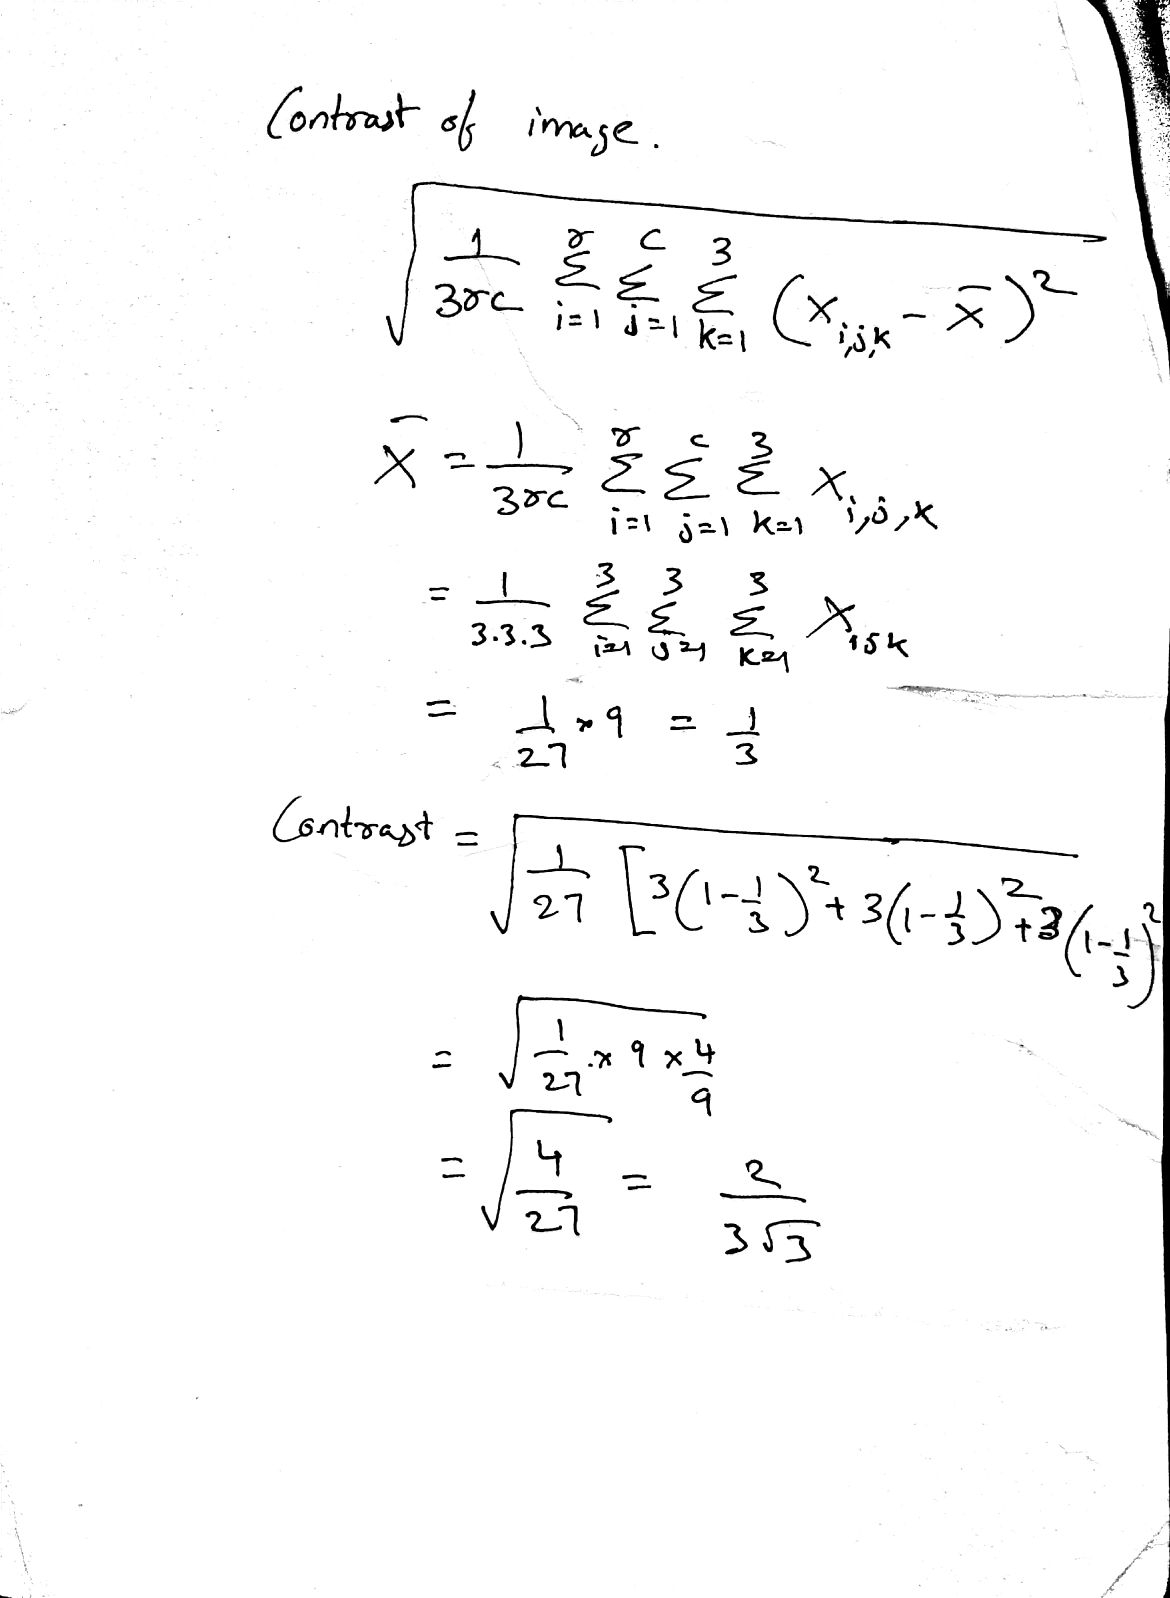 Contrast of image.
√(1/3rc Σ_{i=1}^{r} Σ_{j=1}^{c} Σ_{k=1}^{3} (x_{i,j,k} - x̄)²)
x̄ = 1/3rc Σ_{i=1}^{r} Σ_{j=1}^{c} Σ_{k=1}^{3} x_{i,j,k}
= 1/3.3.3 Σ_{i=1}^{3} Σ_{j=1}^{3} Σ_{k=1}^{3} x_{ijk}
= 1/27 × 9 = 1/3
Contrast = √(1/27 [3(1-1/3)² + 3(1-1/3)² + 3(1-1/3)²
= √(1/27 × 9 × 4/9)
= √(4/27) = 2/3√3